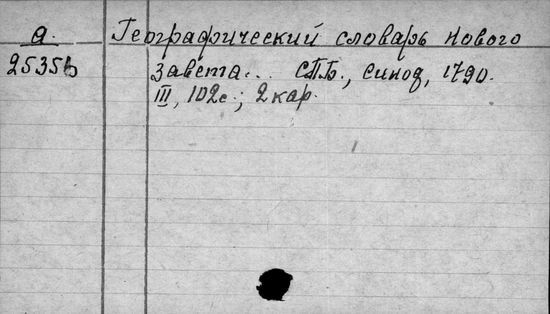 а. Географический словарь Нового
25355 Завета... СПБ., синод, 1790.
III, 102с.; 2 кар.